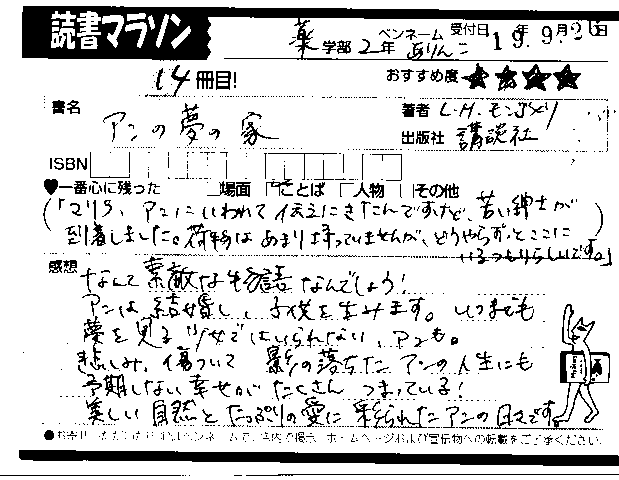 読書マラソン
薬学部 2年 ペンネーム ありんこ 受付日 19年9月26日
14冊目! おすすめ度 ★★★★
書名 アンの夢の家
著者 L.M.モンゴメリ
出版社 講談社
ISBN
♥一番心に残った □場面 □ことば □人物 □その他
「マリラ、アンにいわれて伝えにきたんですけど、若い紳士が
到着しました。荷物はあまり持っていませんが、どうやらずっとここに
いるつもりらしいです。」
感想 なんて素敵な物語なんでしょう!
アンは結婚し、子供を生みます。いつまでも
夢を見る少女ではいられない、アンも。
悲しみ、傷ついて 影の落ちたアンの人生にも
予期しない幸せがたくさんつまっている!
美しい自然とたっぷりの愛に彩られたアンの日々です。
ペンネームで、店内で掲示、ホームページおよび宣伝物への転載をご了承ください。